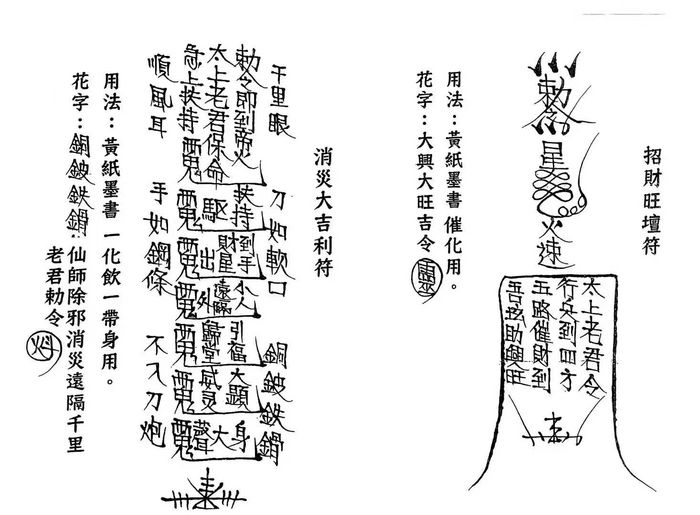 招財旺壇符
勅令
星
火速
太上老君令
行兵到四方
五路催財到
助興旺
用法：黃紙墨書 催化用。
花字：大興大旺吉令 靈
消災大吉利符
千里眼 刀如軟口 銅鈸鉄
勅令即到帝火
太上老君保命
急上扶持
扶持
驅
到手
財星
出
小人
遠隔
外
引福
歸堂
大顯
威灵
身大聲
順風耳 手如鋼條 不入刀炮
用法：黃紙墨書 一化飲一帶身用。
花字：銅鈸鉄 仙師除邪消災遠隔千里
老君勅令